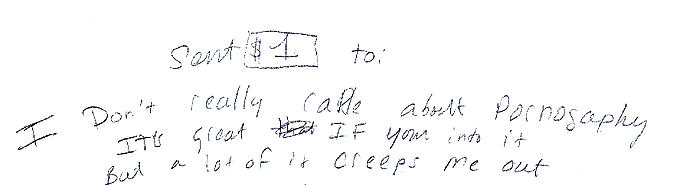 Sent $1 to:
I Don't really care about Pornography
It's great If your into it
But a lot of it creeps me out